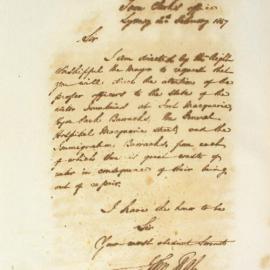 Town Clerk's Office
Sydney 2nd February 1857
Sir
I am directed by the Right
Worshipful the Mayor to request that
you will direct the attention of the
proper officers to the state of the
water at Fort Macquarie,
Hyde Park Barracks, the General
Hospital Macquarie Street and the
Immigration Barracks, from each
of which there is great waste of
water in consequence of their being
out of repair.
I have the honor to be
Sir
Your most obedient Servant